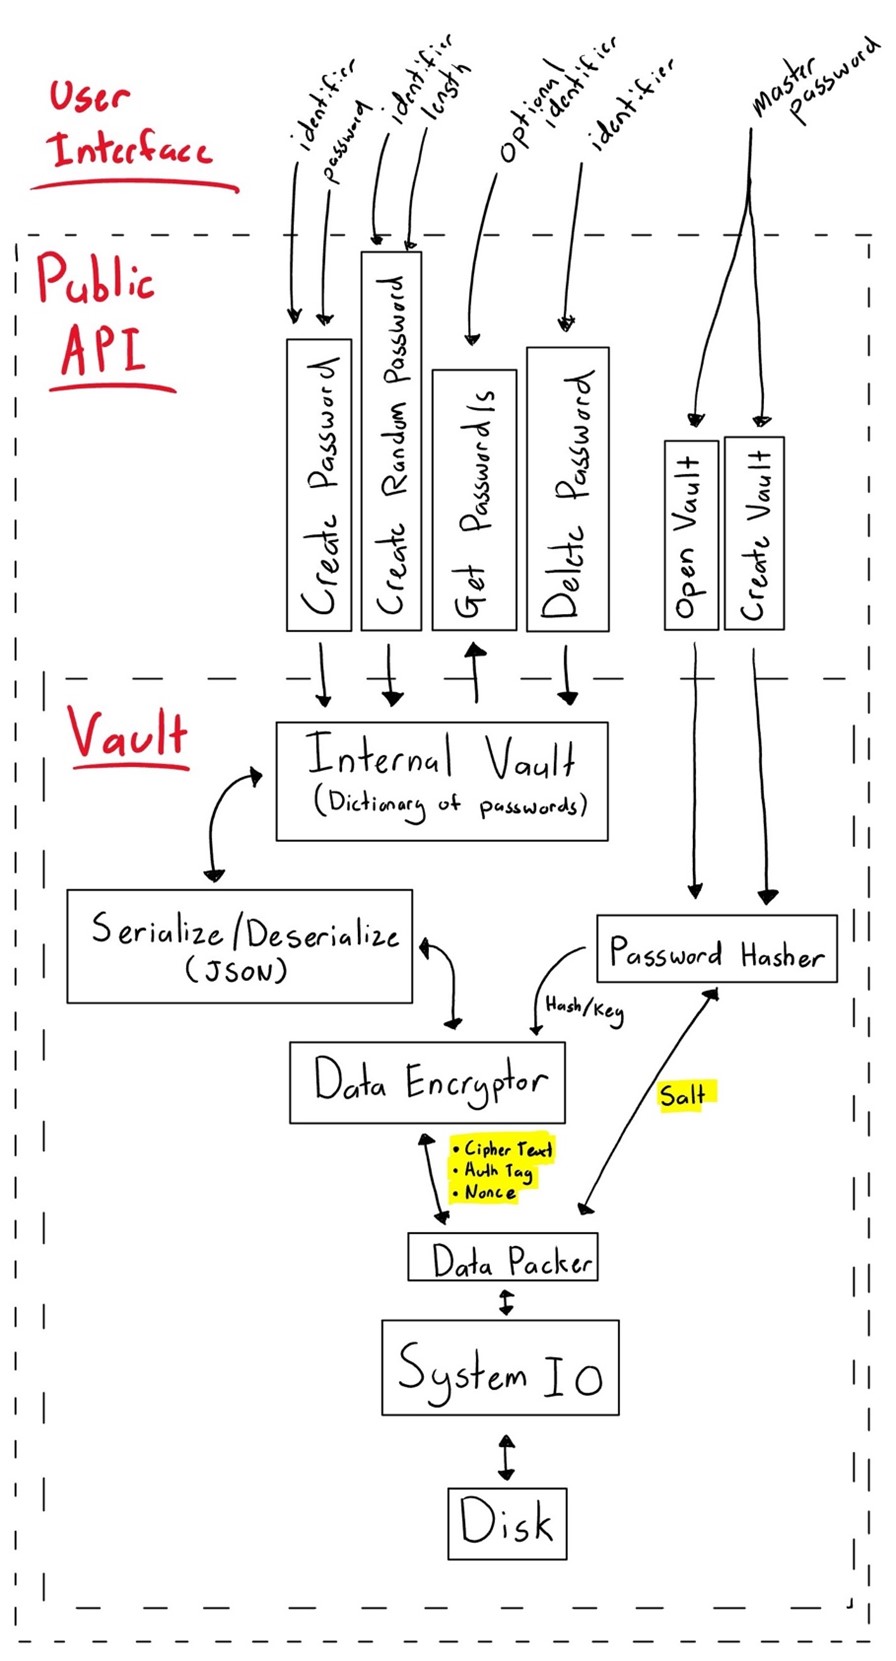 User
Interface
identifier
password
identifier
length
optional
identifier
identifier
master
password
Public
API
Create Password
Create Random Password
Get Password/s
Delete Password
Open Vault
Create Vault
Vault
Internal Vault
(Dictionary of passwords)
Serialize/Deserialize
(JSON)
Password Hasher
Hash/Key
Data Encryptor
Salt
• Cipher Text
• Auth Tag
• Nonce
Data Packer
System IO
Disk